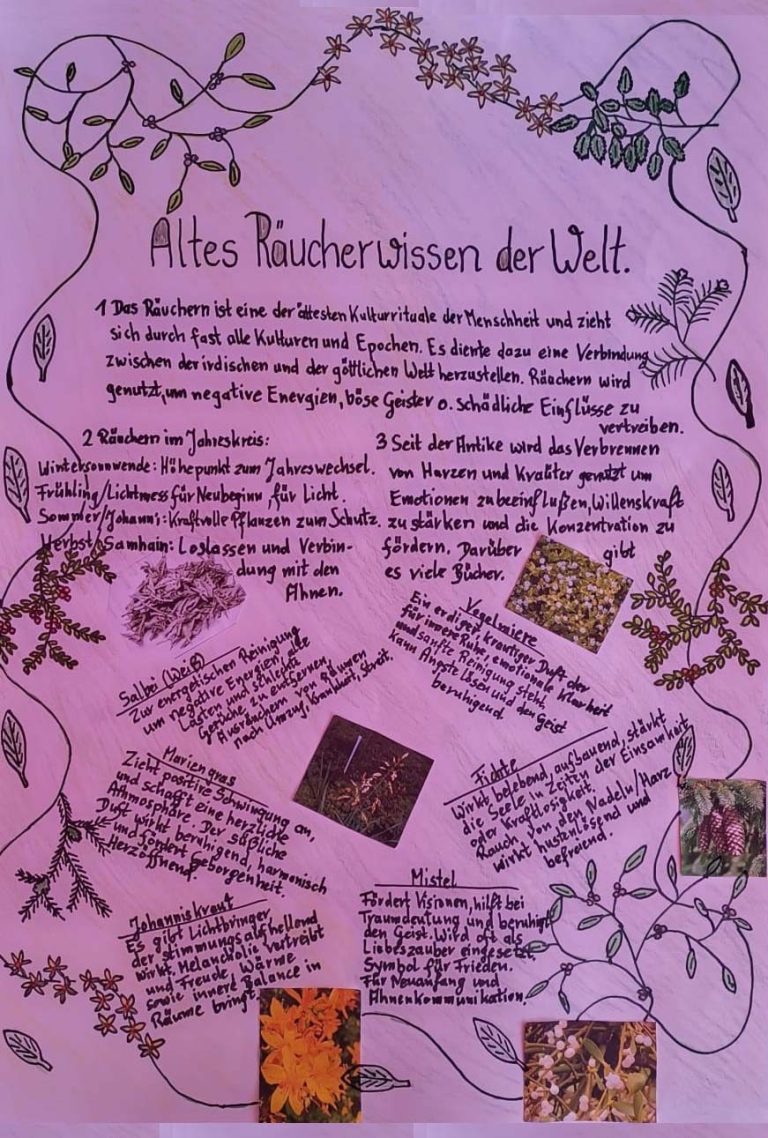 Altes Räucherwissen der Welt.
1 Das Räuchern ist eine der ältesten Kulturrituale der Menschheit und zieht
sich durch fast alle Kulturen und Epochen. Es diente dazu eine Verbindung
zwischen der irdischen und der göttlichen Welt herzustellen. Räuchern wird
genutzt, um negative Energien, böse Geister o. schädliche Einflüsse zu
vertreiben.
2 Räuchern im Jahreskreis:
Wintersonnwende: Höhepunkt zum Jahreswechsel.
Frühling/Lichtmess für Neubeginn, für Licht.
Sommer/Johanni: Kraftvolle Pflanzen zum Schutz.
Herbst/Samhain: Loslassen und Verbin-
dung mit den
Ahnen.
3 Seit der Antike wird das Verbrennen
von Harzen und Kräuter genutzt um
Emotionen zu beeinflußen, Willenskraft
zu stärken und die Konzentration zu
fördern. Darüber gibt
es viele Bücher.
Salbei (Weiß)
Zur energetischen Reinigung
um negative Energien, alte
Lasten und schlechte
Gerüche zu entfernen.
Ausräuchern von Räumen
nach Umzug, Krankheit, Streit.
Vogelmiere
Ein erdiger, krautiger Duft der
für innere Ruhe, emotionale Klarheit
und sanfte Reinigung steht,
kann Ängste lösen und den Geist
beruhigend
Mariengras
Zieht positive Schwingung an,
und schafft eine herzliche
Athmosphäre. Der süßliche
Duft wirkt beruhigend, harmonisch
und fördert Geborgenheit.
Herzöffnend.
Fichte
Wirkt belebend, aufbauend, stärkt
die Seele in Zeiten der Einsamkeit
oder Kraftlosigkeit.
Rauch von den Nadeln/Harz
wirkt hustenlösend und
befreiend.
Johanniskraut
Es gibt Lichtbringer,
der stimmungsaufhellend
wirkt. Melancholie vertreibt
und Freude, Wärme
sowie innere Balance in
Räume bringt.
Mistel
Fördert Visionen, hilft bei
Traumdeutung und beruhigt
den Geist. Wird oft als
Liebeszauber eingesetzt.
Symbol für Frieden.
Für Neuanfang und
Ahnenkommunikation.